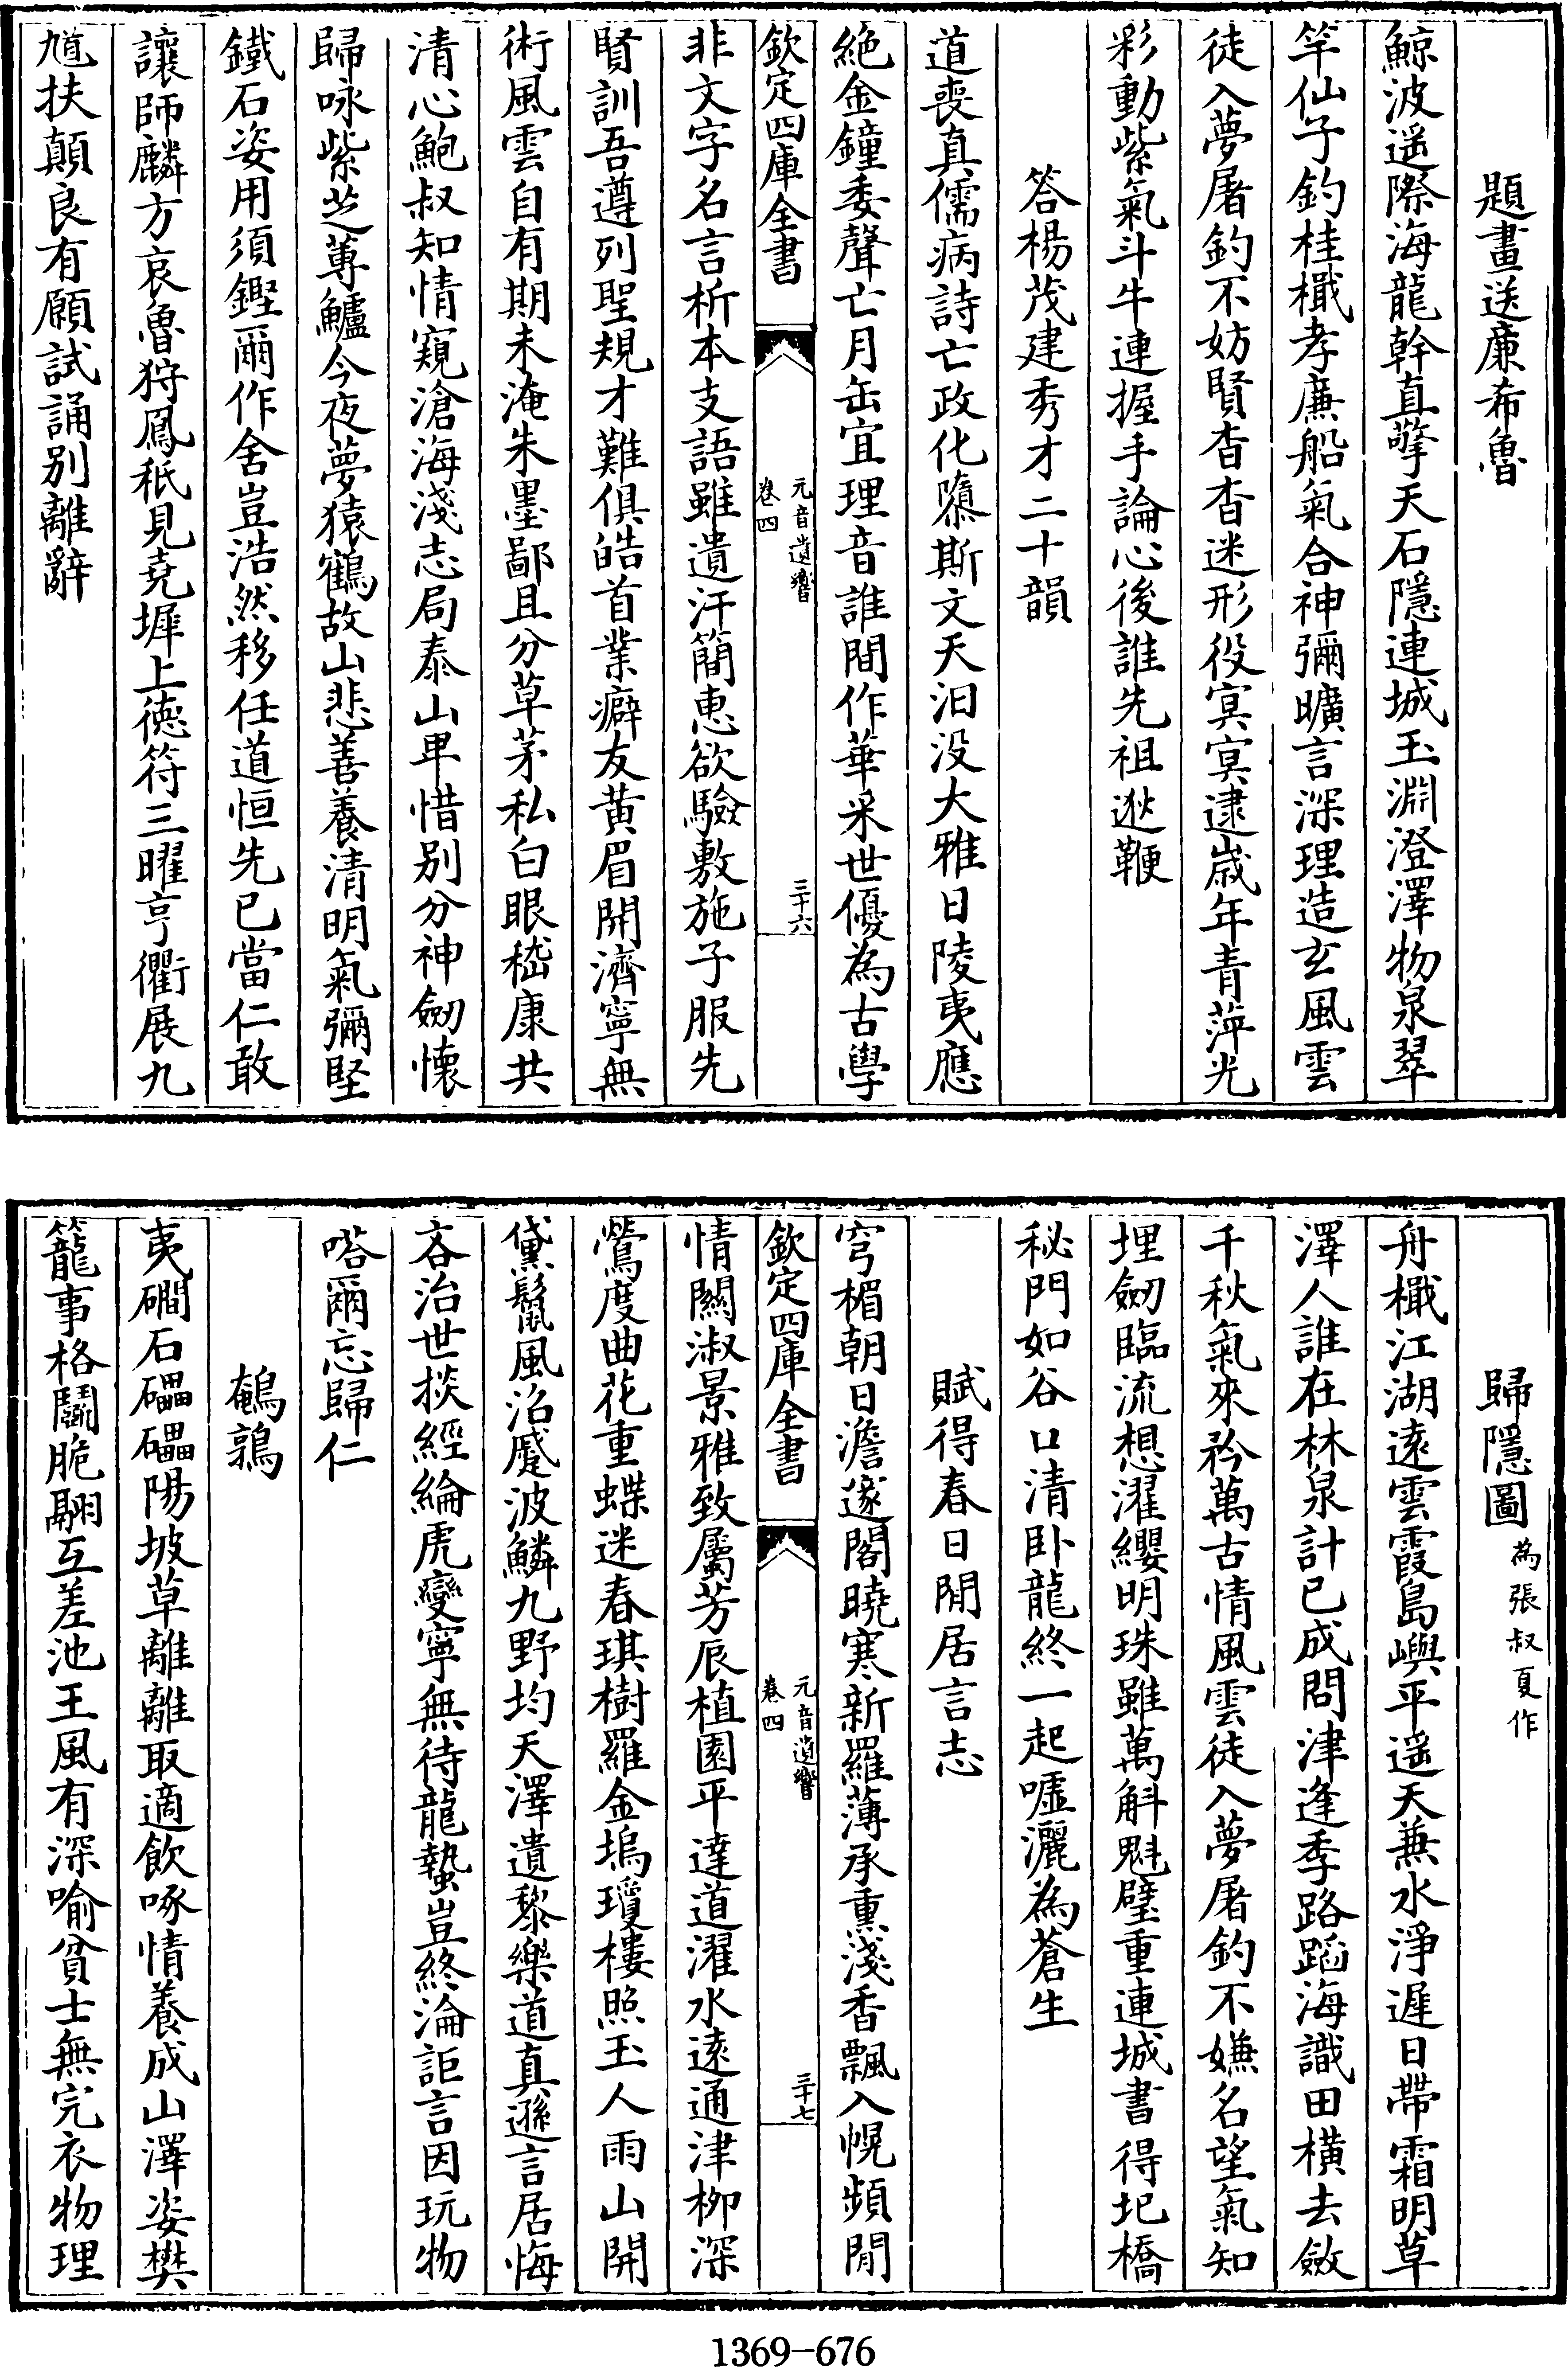 題畫送廉希魯
鯨波遥際海龍幹直擎天石隱連城玉淵澄澤物泉翠
竿仙子釣桂檝孝廉船氣合神彌曠言深理造玄風雲
徒入夢屠釣不妨賢杳杳迷形役冥冥逮歲年青萍光
彩動紫氣斗牛連握手論心後誰先祖逖鞭
答楊茂建秀才二十韻
道喪真儒病詩亡政化隳斯文天汨没大雅日陵夷應
絶金鐘委聲亡月缶宜理音誰間作華采世優為古學
欽定四庫全書
元音遺響
卷四
三十六
非文字名言析本支語雖遺汗簡恵欲驗敷施子服先
賢訓吾遵列聖規才難俱皓首業癖友黄眉開濟寧無
術風雲自有期未淹朱墨鄙且分草茅私白眼嵇康共
清心鮑叔知情窺滄海淺志局泰山卑惜别分神劒懐
歸咏紫芝蓴鱸今夜夢猿鶴故山悲善養清明氣彌堅
鐵石姿用須鏗爾作舍豈浩然移任道恒先已當仁敢
讓師麟方哀魯狩鳳秖見堯墀上徳符三曜亨衢展九
馗扶顛良有願試誦别離辭
歸隱圖為張叔夏作
舟檝江湖逺雲霞島嶼平遥天兼水淨遲日帶霜明草
澤人誰在林泉計已成問津逢季路蹈海識田横去斂
千秋氣來矜萬古情風雲徒入夢屠釣不嫌名望氣知
埋劒臨流想濯纓明珠雖萬斛魁璧重連城書得圯橋
秘門如谷口清卧龍終一起噓灑為蒼生
賦得春日閒居言志
穹楣朝日澹邃閣曉寒新羅薄承熏淺香飄入幌頻閒
欽定四庫全書
元音遺響
卷四
三十七
情關淑景雅致屬芳辰植園平達道濯水逺通津栁深
鶯度曲花重蝶迷春琪樹羅金塢瓊樓照玉人雨山開
黛鬟風沼蹙波鱗九野均天澤遺黎樂道真遜言居悔
吝治世掞經綸虎變寧無待龍蟄豈終淪詎言因玩物
嗒爾忘歸仁
鵪鶉
夷磵石礧礧陽坡草離離取適飲啄情養成山澤姿樊
籠事格鬭脆翮互差池王風有深喻貧士無完衣物理
1369-676